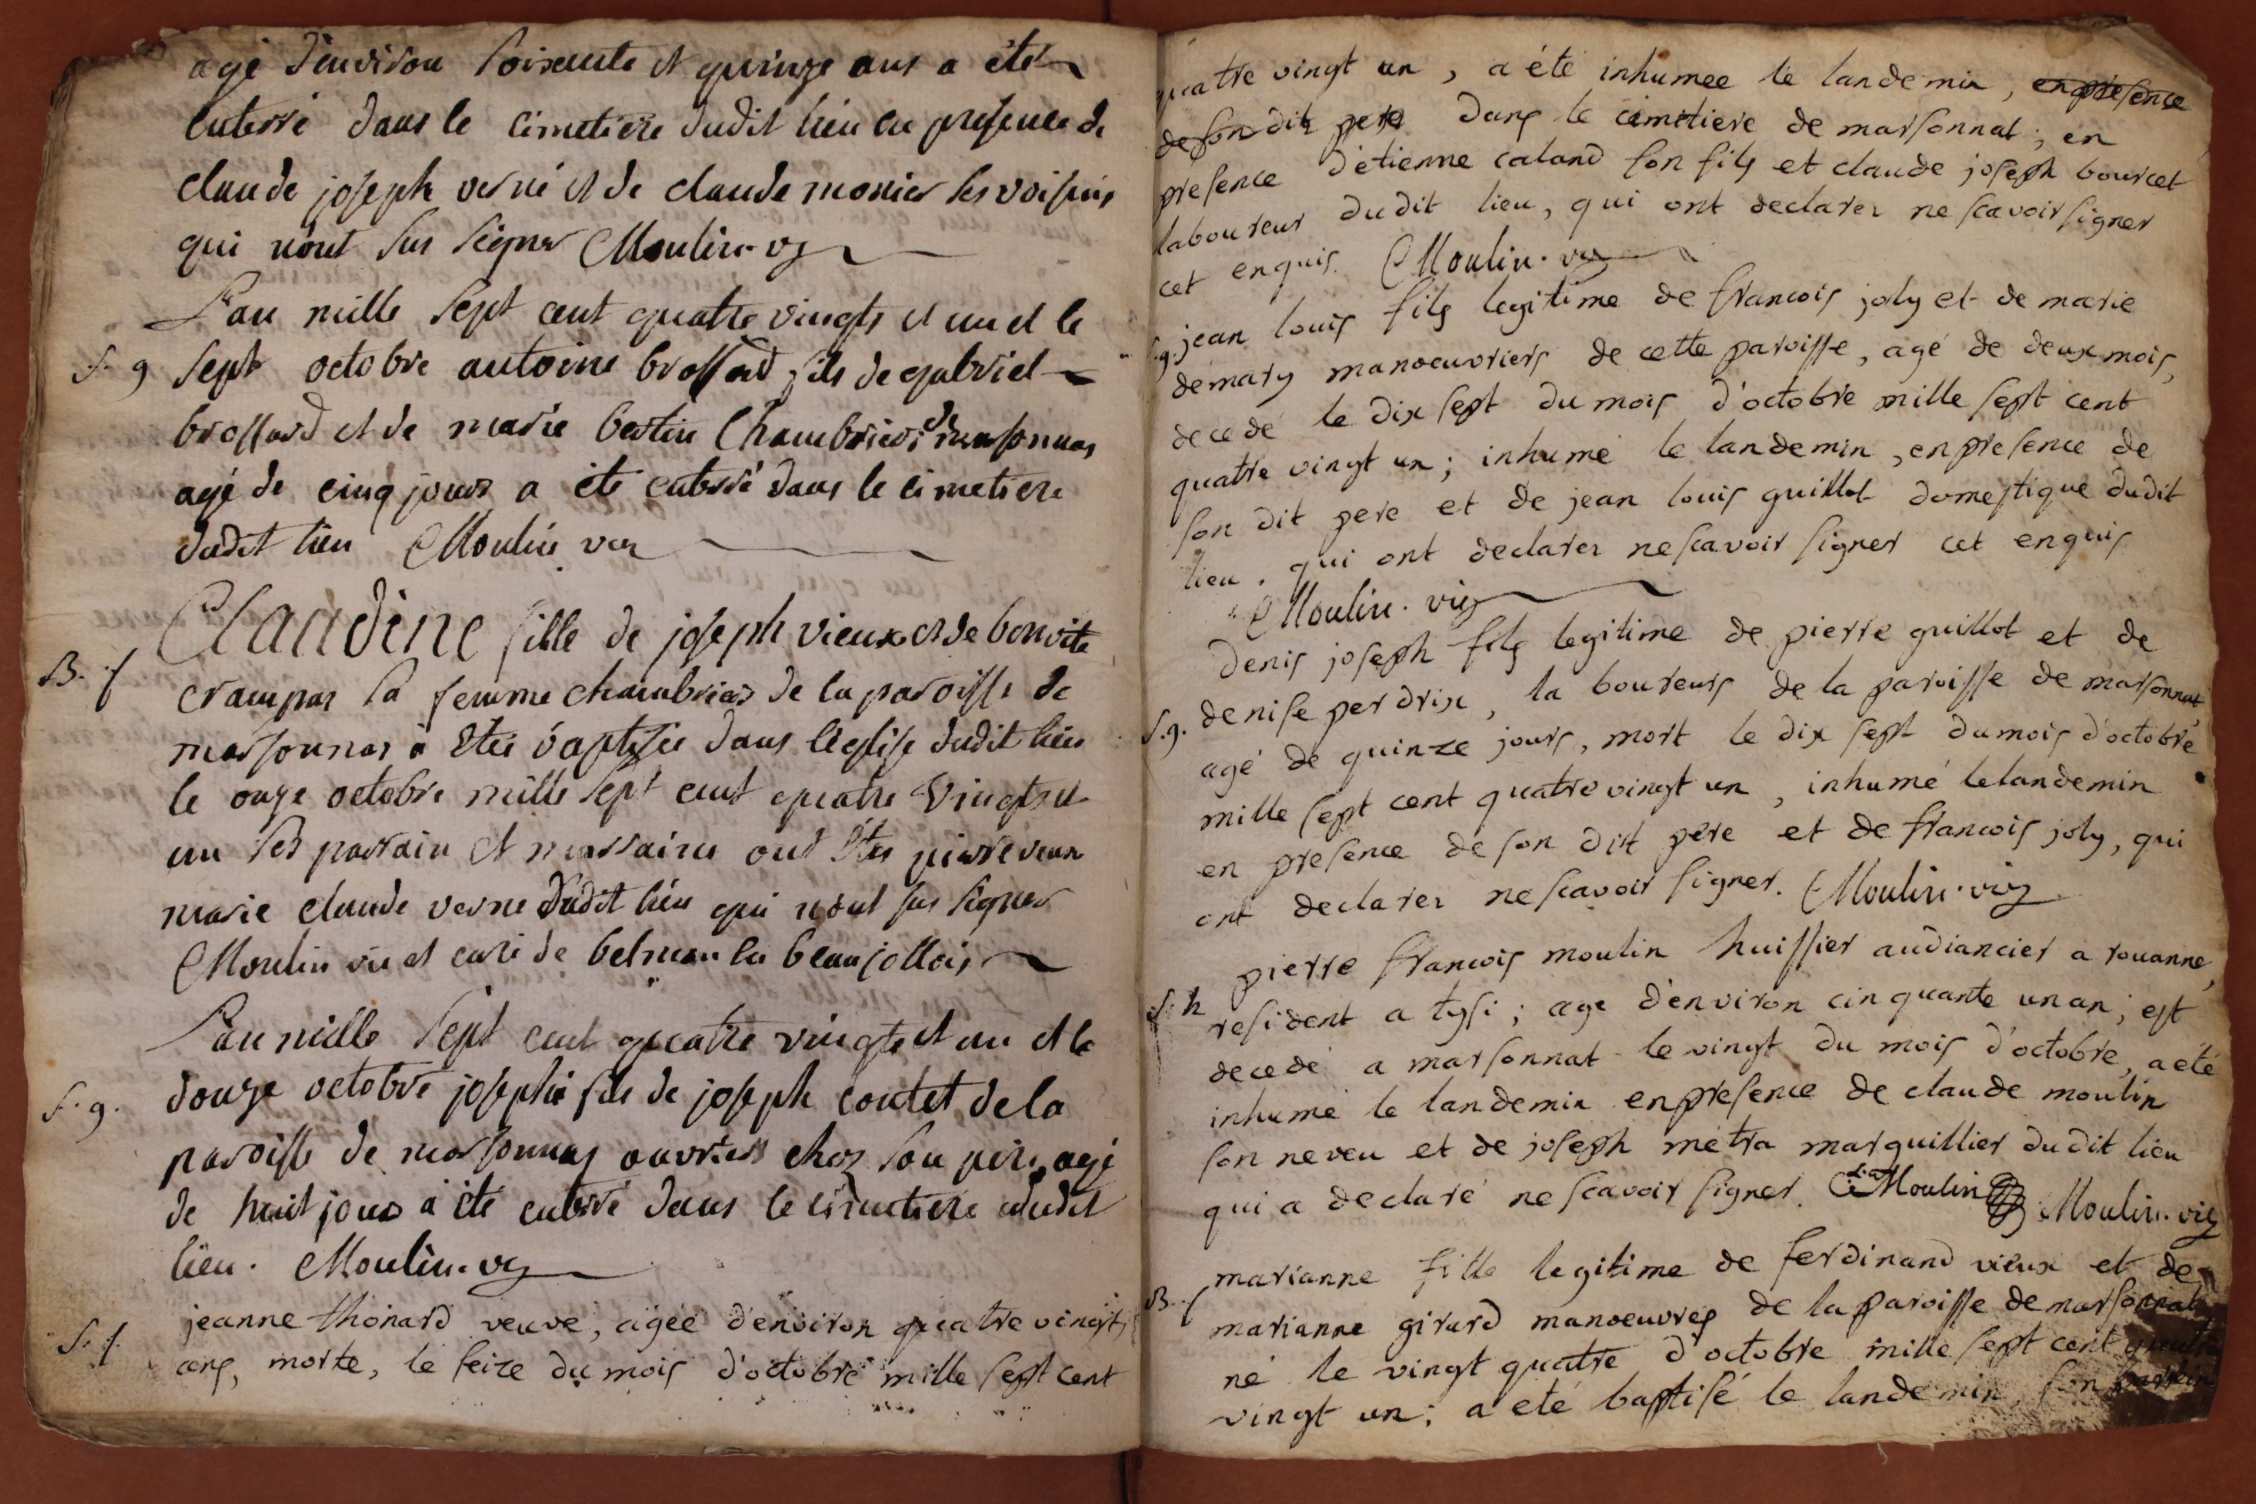 agé d'environ soixante et quinze ans a été
enterré dans le cimetiere dudit lieu en presence de
claude joseph verné et de claude monier ses voisins
qui n'ont sus signer Moulin vy
L'an mille sept cent quatre vingts et un et le
S. g sept octobre antoine brossard fils de gabriel
brossard et de marie bertin Chambriers de marsonnas
agé de cinq jours a été enterré dans le cimetiere
dudit lieu Moulin vic
Claudine fille de joseph vieux et de benoite
B. f crampas sa femme chambriers de la paroisse de
marsonnas a étée baptisée dans l'eglise dudit lieu
le onze octobre mille sept cent quatre vingts et
un ses parrain et marraine ont étés pierre vieux
marie claude verne dudit lieu qui n'ont sus signer
Moulin vic et curé de belmon en beaujollois
L'an mille sept cent quatre vingts et un et le
S. g. douze octobre joseph fils de joseph contet de la
paroisse de marsonnas ouvriers chez son pere agé
de huit jours a été enterré dans le cimetiere dudit
lieu. Moulin. vy
jeanne thonard veuve, agée d'environ quatre vingts
S. f. ans, morte, le seize du mois d'octobre mille sept cent
quatre vingt un, a été inhumee le landemin, en presence
de son dit pere dans le cimetiere de marsonnat; en
presence d'etienne caland son fils et claude joseph bourcet
laboureur dudit lieu, qui ont declarer ne scavoir signer
cet enquis. Moulin. vic
S. g. jean louis fils legitime de francois joly et de marie
demary manoeuvriers de cette paroisse, agé de deux mois,
decedé le dix sept du mois d'octobre mille sept cent
quatre vingt un; inhumé le landemin, en presence de
son dit pere et de jean louis guillot domestique dudit
lieu. qui ont declarer ne scavoir signer cet enquis
Moulin. vic
denis joseph fils legitime de pierre guillot et de
S. g. denise perdrix, laboureurs de la paroisse de marsonnat
agé de quinze jours, mort le dix sept du mois d'octobre
mille sept cent quatre vingt un, inhumé le landemin
en presence de son dit pere et de francois joly, qui
ont declarer ne scavoir signer. Moulin. vic
pierre francois moulin huissier audiancier a rouanne,
S. h resident a tysi; age d'environ cinquante un an; est
decedé a marsonnat le vingt du mois d'octobre, a eté
inhumé le landemin en presence de claude moulin
son neveu et de joseph metra marguillier dudit lieu
qui a declaré ne scavoir signer. Moulin Moulin. vic
marianne fille legitime de ferdinand vieux et de
B. f marianne girard manoeuvres de la paroisse de marsonnat
né le vingt quatre d'octobre mille sept cent quatre
vingt un; a eté baptisé le landemin, son parrein